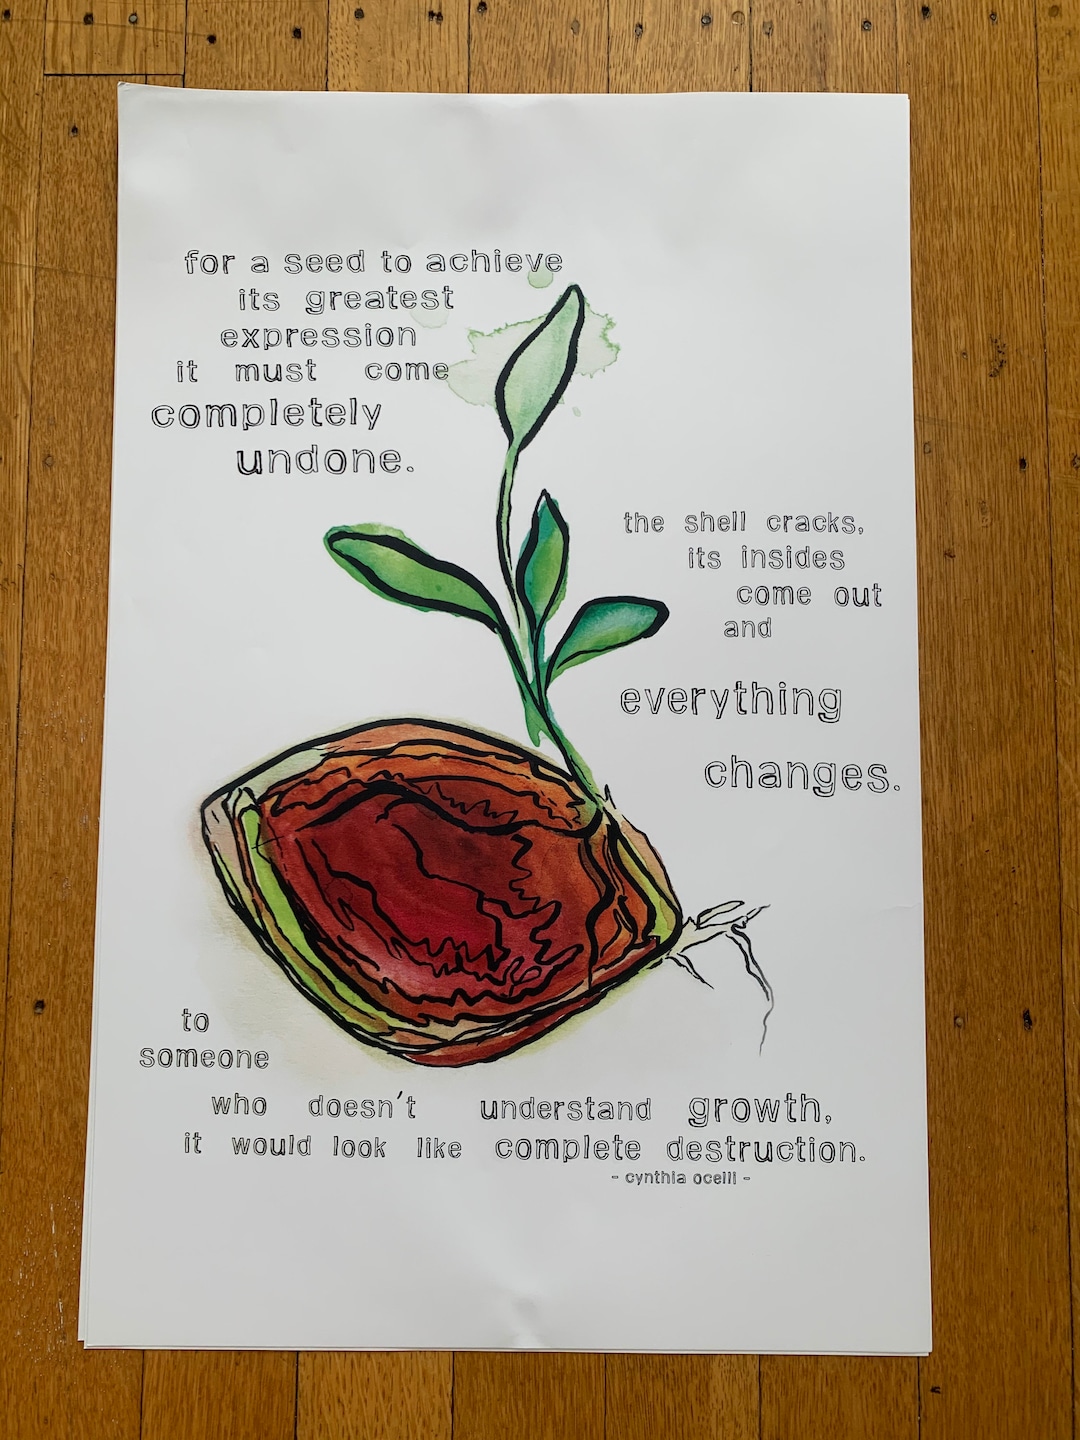 for a seed to achieve
its greatest
expression
it must come
completely
undone.
the shell cracks,
its insides
come out
and
everything
changes.
to
someone
who doesn't understand growth,
it would look like complete destruction.
- cynthia ocelli -